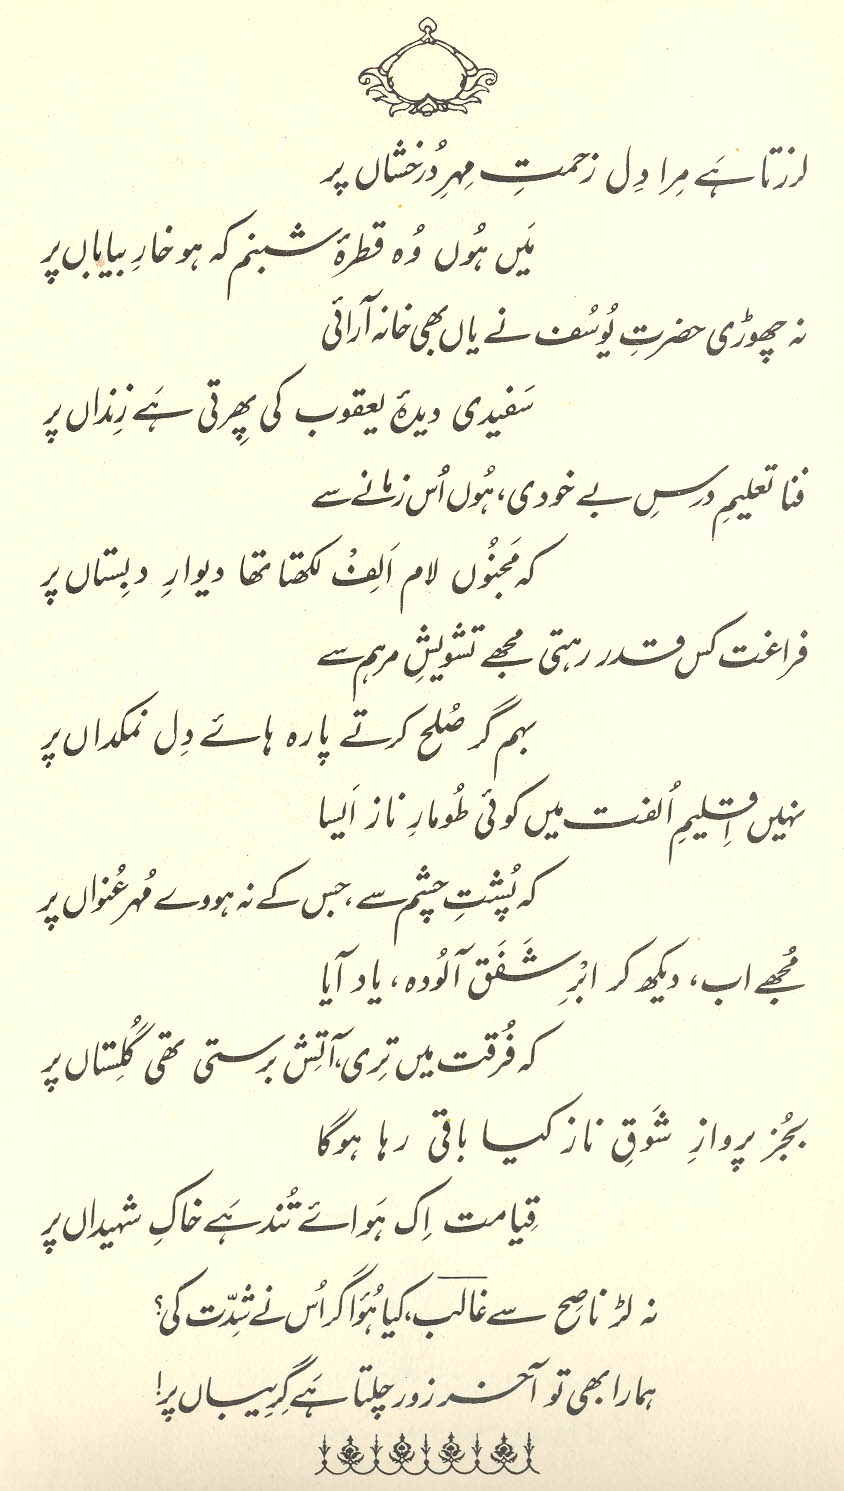 لرزتا ہَے مِرا دِل زحمتِ مِہرِ دُرخشاں پر
مَیں ہُوں وُہ قطرۂ شبنم کہ ہو خارِ بیاباں پر
نہ چھوڑی حضرتِ یُوسُف نے یاں بھی خانہ آرائی
سَفیدی دیدۂ یعقوب کی پِھرتی ہَے زِنداں پر
فنا تعلیمِ درسِ بے خودی، ہُوں اُس زمانے سے
کہ مَجنُوں لام اَلِفْ لکھتا تھا دیوارِ دبِستاں پر
فراغت کس قدر رہتی مجھے تشویشِ مرہم سے
بہم گر صُلح کرتے پارہ ہائے دِل نمکداں پر
نہیں اِقلیمِ اُلفت میں کوئی طُومارِ ناز اَیسا
کہ پُشتِ چشم سے، جس کے نہ ہووے مُہر عُنواں پر
مُجھے اب، دیکھ کر ابْرِ شَفَق آلُودہ، یاد آیا
کہ فُرقت میں تِری، آتِش برستی تھی گُلِستاں پر
بجُز پروازِ شَوقِ ناز کیا باقی رہا ہوگا
قِیامت اِک ہَوائے تُند ہَے خاکِ شہیداں پر
نہ لڑ ناصِح سے غالب، کیا ہُؤا گر اُس نے شِدّت کی؟
ہمارا بھی تو آخر زور چلتا ہَے گِرِیباں پر!